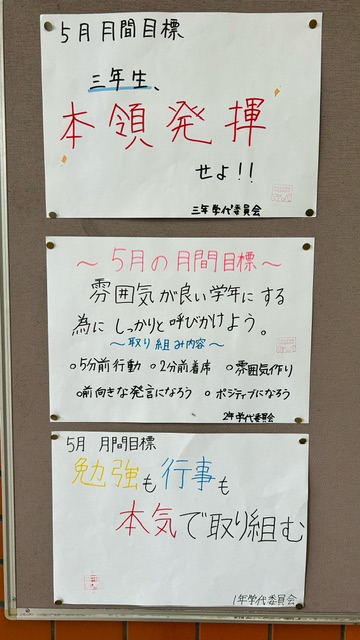 5月月間目標
三年生、
本領発揮
せよ!!
三年学代委員会
～5月の月間目標～
雰囲気が良い学年にする
為にしっかりと呼びかけよう。
～取り組み内容～
○5分前行動 ○2分前着席 ○雰囲気作り
○前向きな発言になろう ○ポジティブになろう
2年学代委員会
5月 月間目標
勉強も行事も
本気で取り組む
1年学代委員会